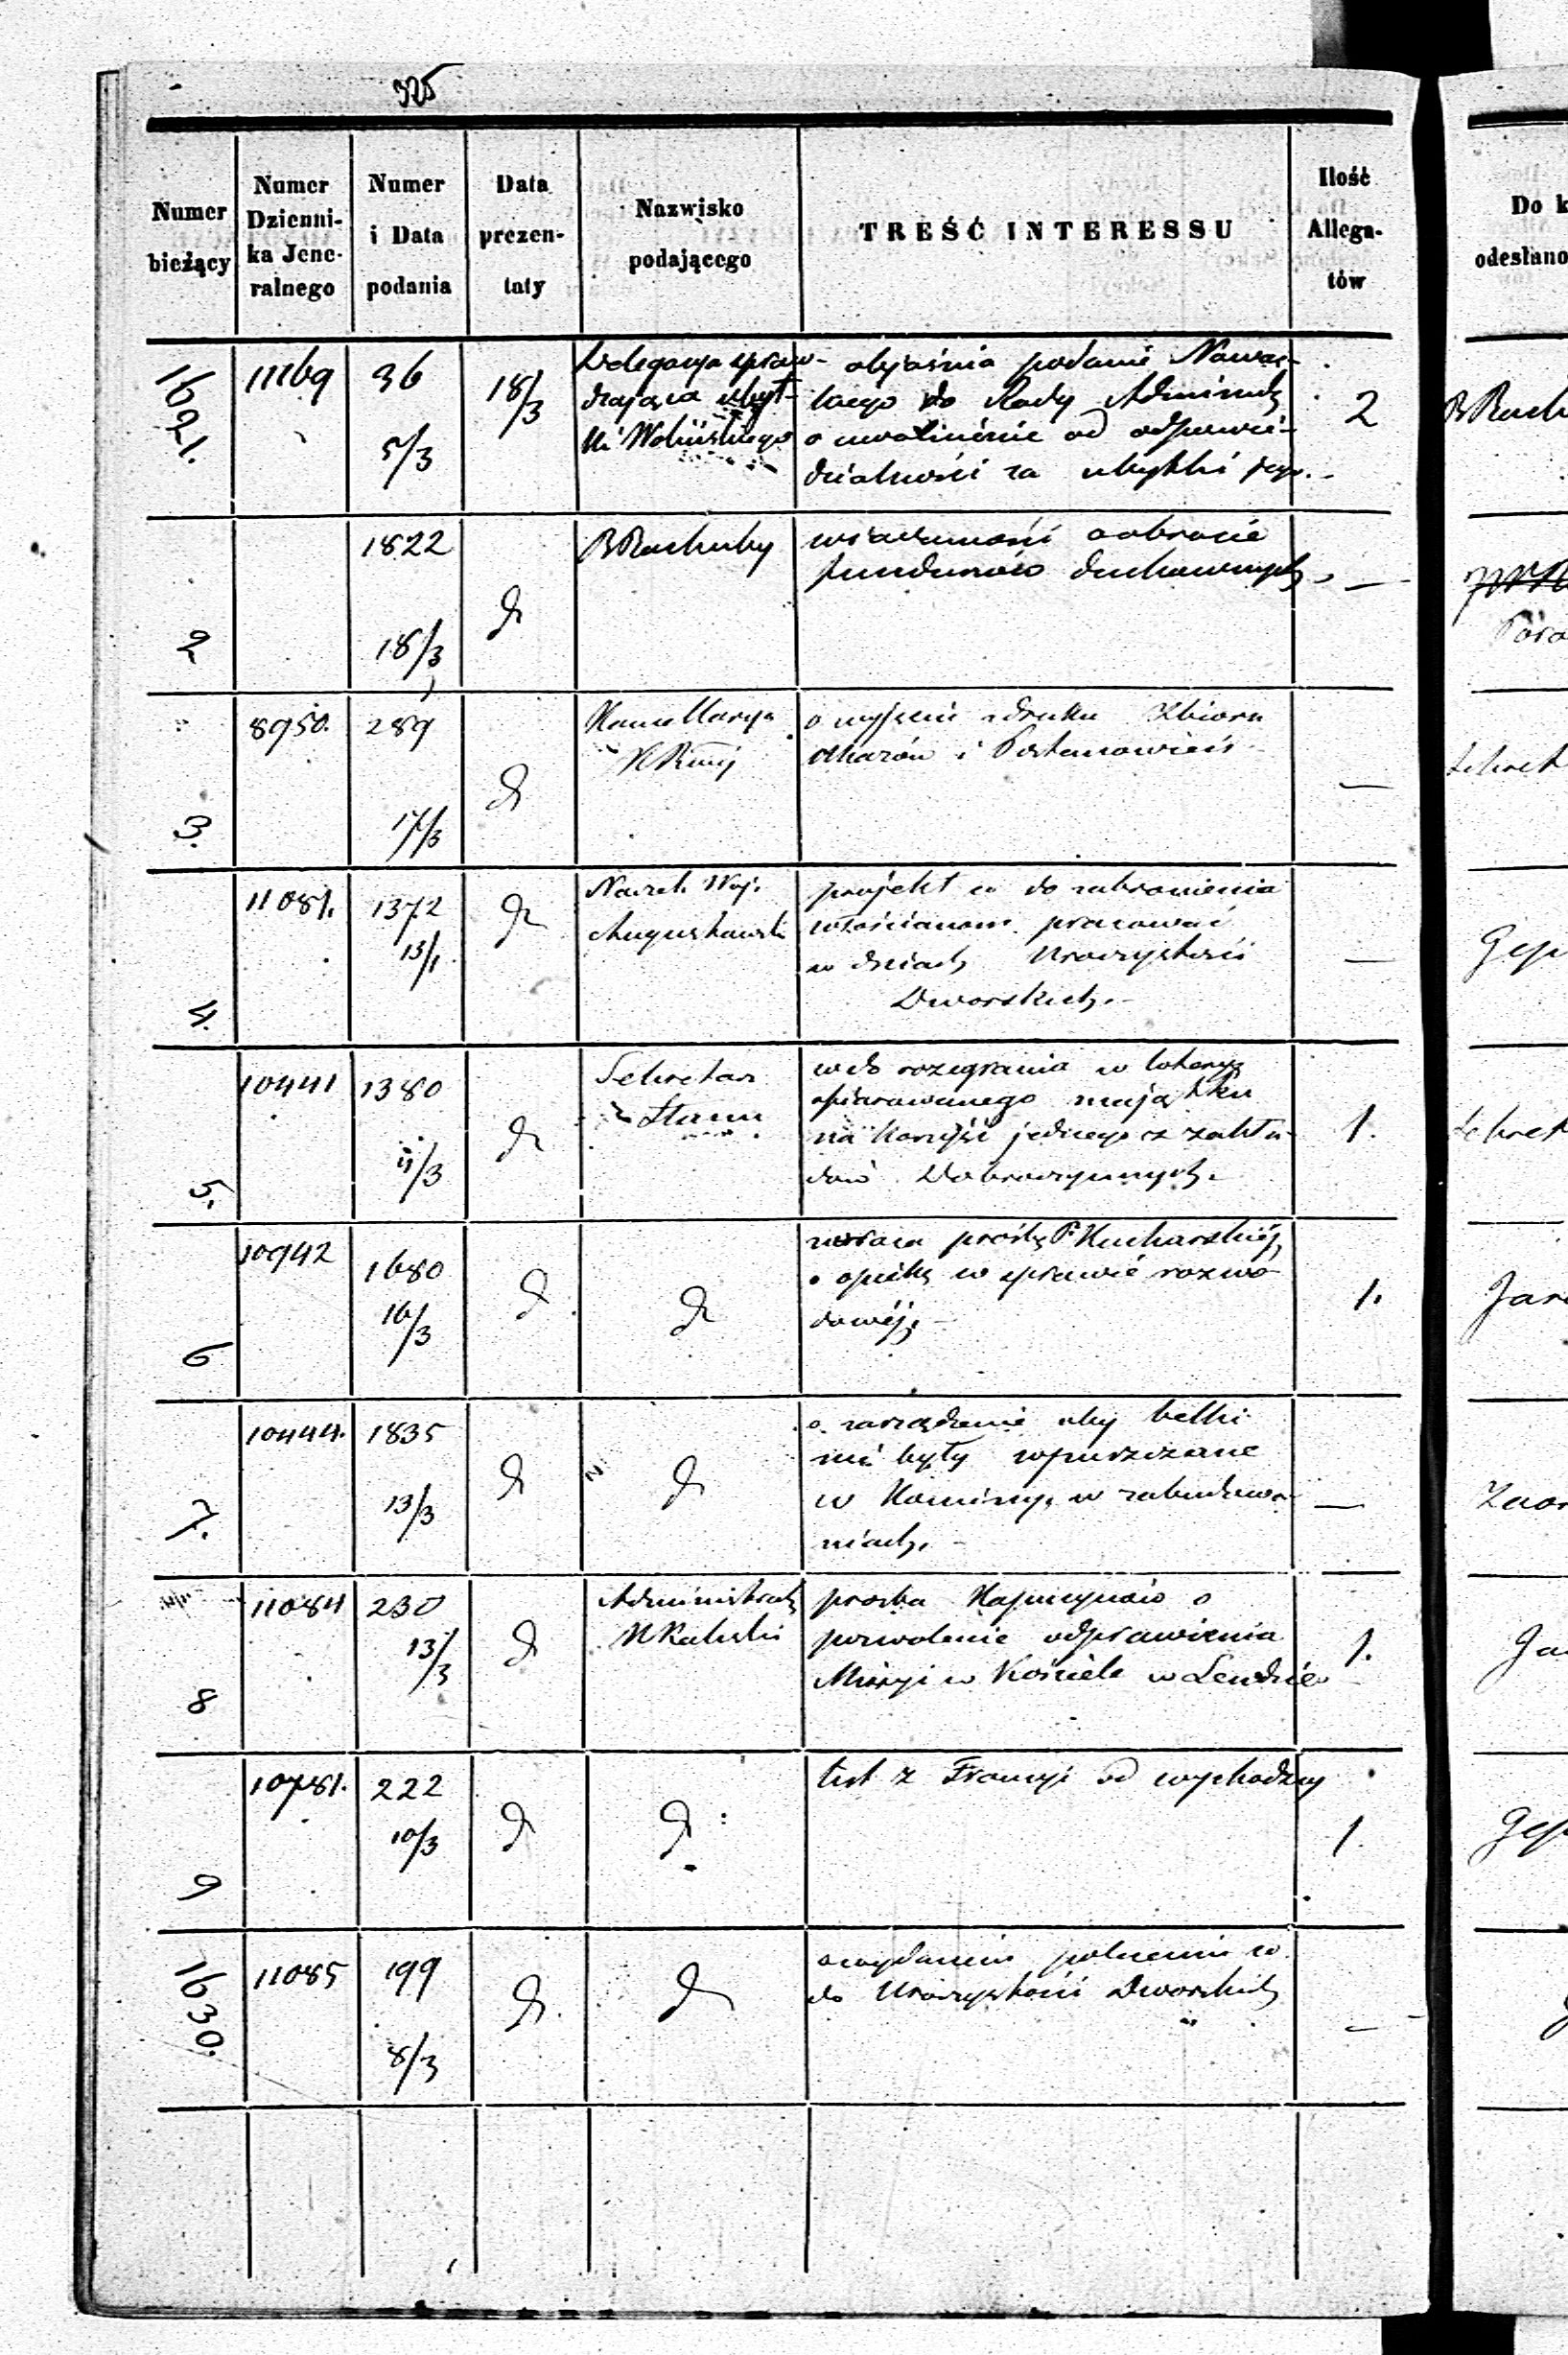 325
Numer bieżący
Numer Dzienni-
ka Jene-
ralnego
Numer
i Data
podania
Data
prezen-
taty
Nazwisko
podającego
TREŚĆ INTERESSU
Ilość
Allega-
tów
Do k
odesłano
1621.
11169
36
5/3
18/3
Delegacya spraw-
dzająca ubyt-
ki Wolińskiego
objaśnia podanie Nawac-
kiego do Rady Administr
o uwolnienie od odpowie-
dzialności za ubytki jego.
2
B Rach
2
1822
18/3
d
B Rachuby
wiadomość o obrocie
funduszów duchownych
—
3.
8950.
289
17/3
d
Kancellarya
o wyjściu z druku Zbioru
Ukazów i Postanowień
—
Sekret
4.
11081.
1372
13/1
d
Naczel. Woj.
Augustowski
projekt co do zabronienia
włościanom pracować
w dniach Uroczystości
Dworskich.
—
Gep
5.
10441
1380
11/3
d
Sekretarz
Stanu
wdo rozegrania w loteryę
ofiarowanego majątku
na korzyść jednego z zakła-
dów Dobroczynnych.
1.
Sekret
6
10942
1680
16/3
d
d
zwraca prośbę P. Kucharskiéj,
o opiekę w sprawie rozwo-
dowéj.
1.
Jan
7.
10444.
1835
13/3
d
d
o zarządzenie aby belki
nie były wpuszczane
w Kominy, w zabudowa-
niach.
—
8
11084
230
13/3
d
Administrat
prośba Kapucynów o
pozwolenie odprawienia
Missyi w Kościele w Lendzie
1.
Ja
9
10781.
222
10/3
d
d
list z Francyi od wychodzcy
1.
Gep
1630.
11085
199
8/3
d
d
o wydanie polecenia co
do Uroczystości Dworskich
—